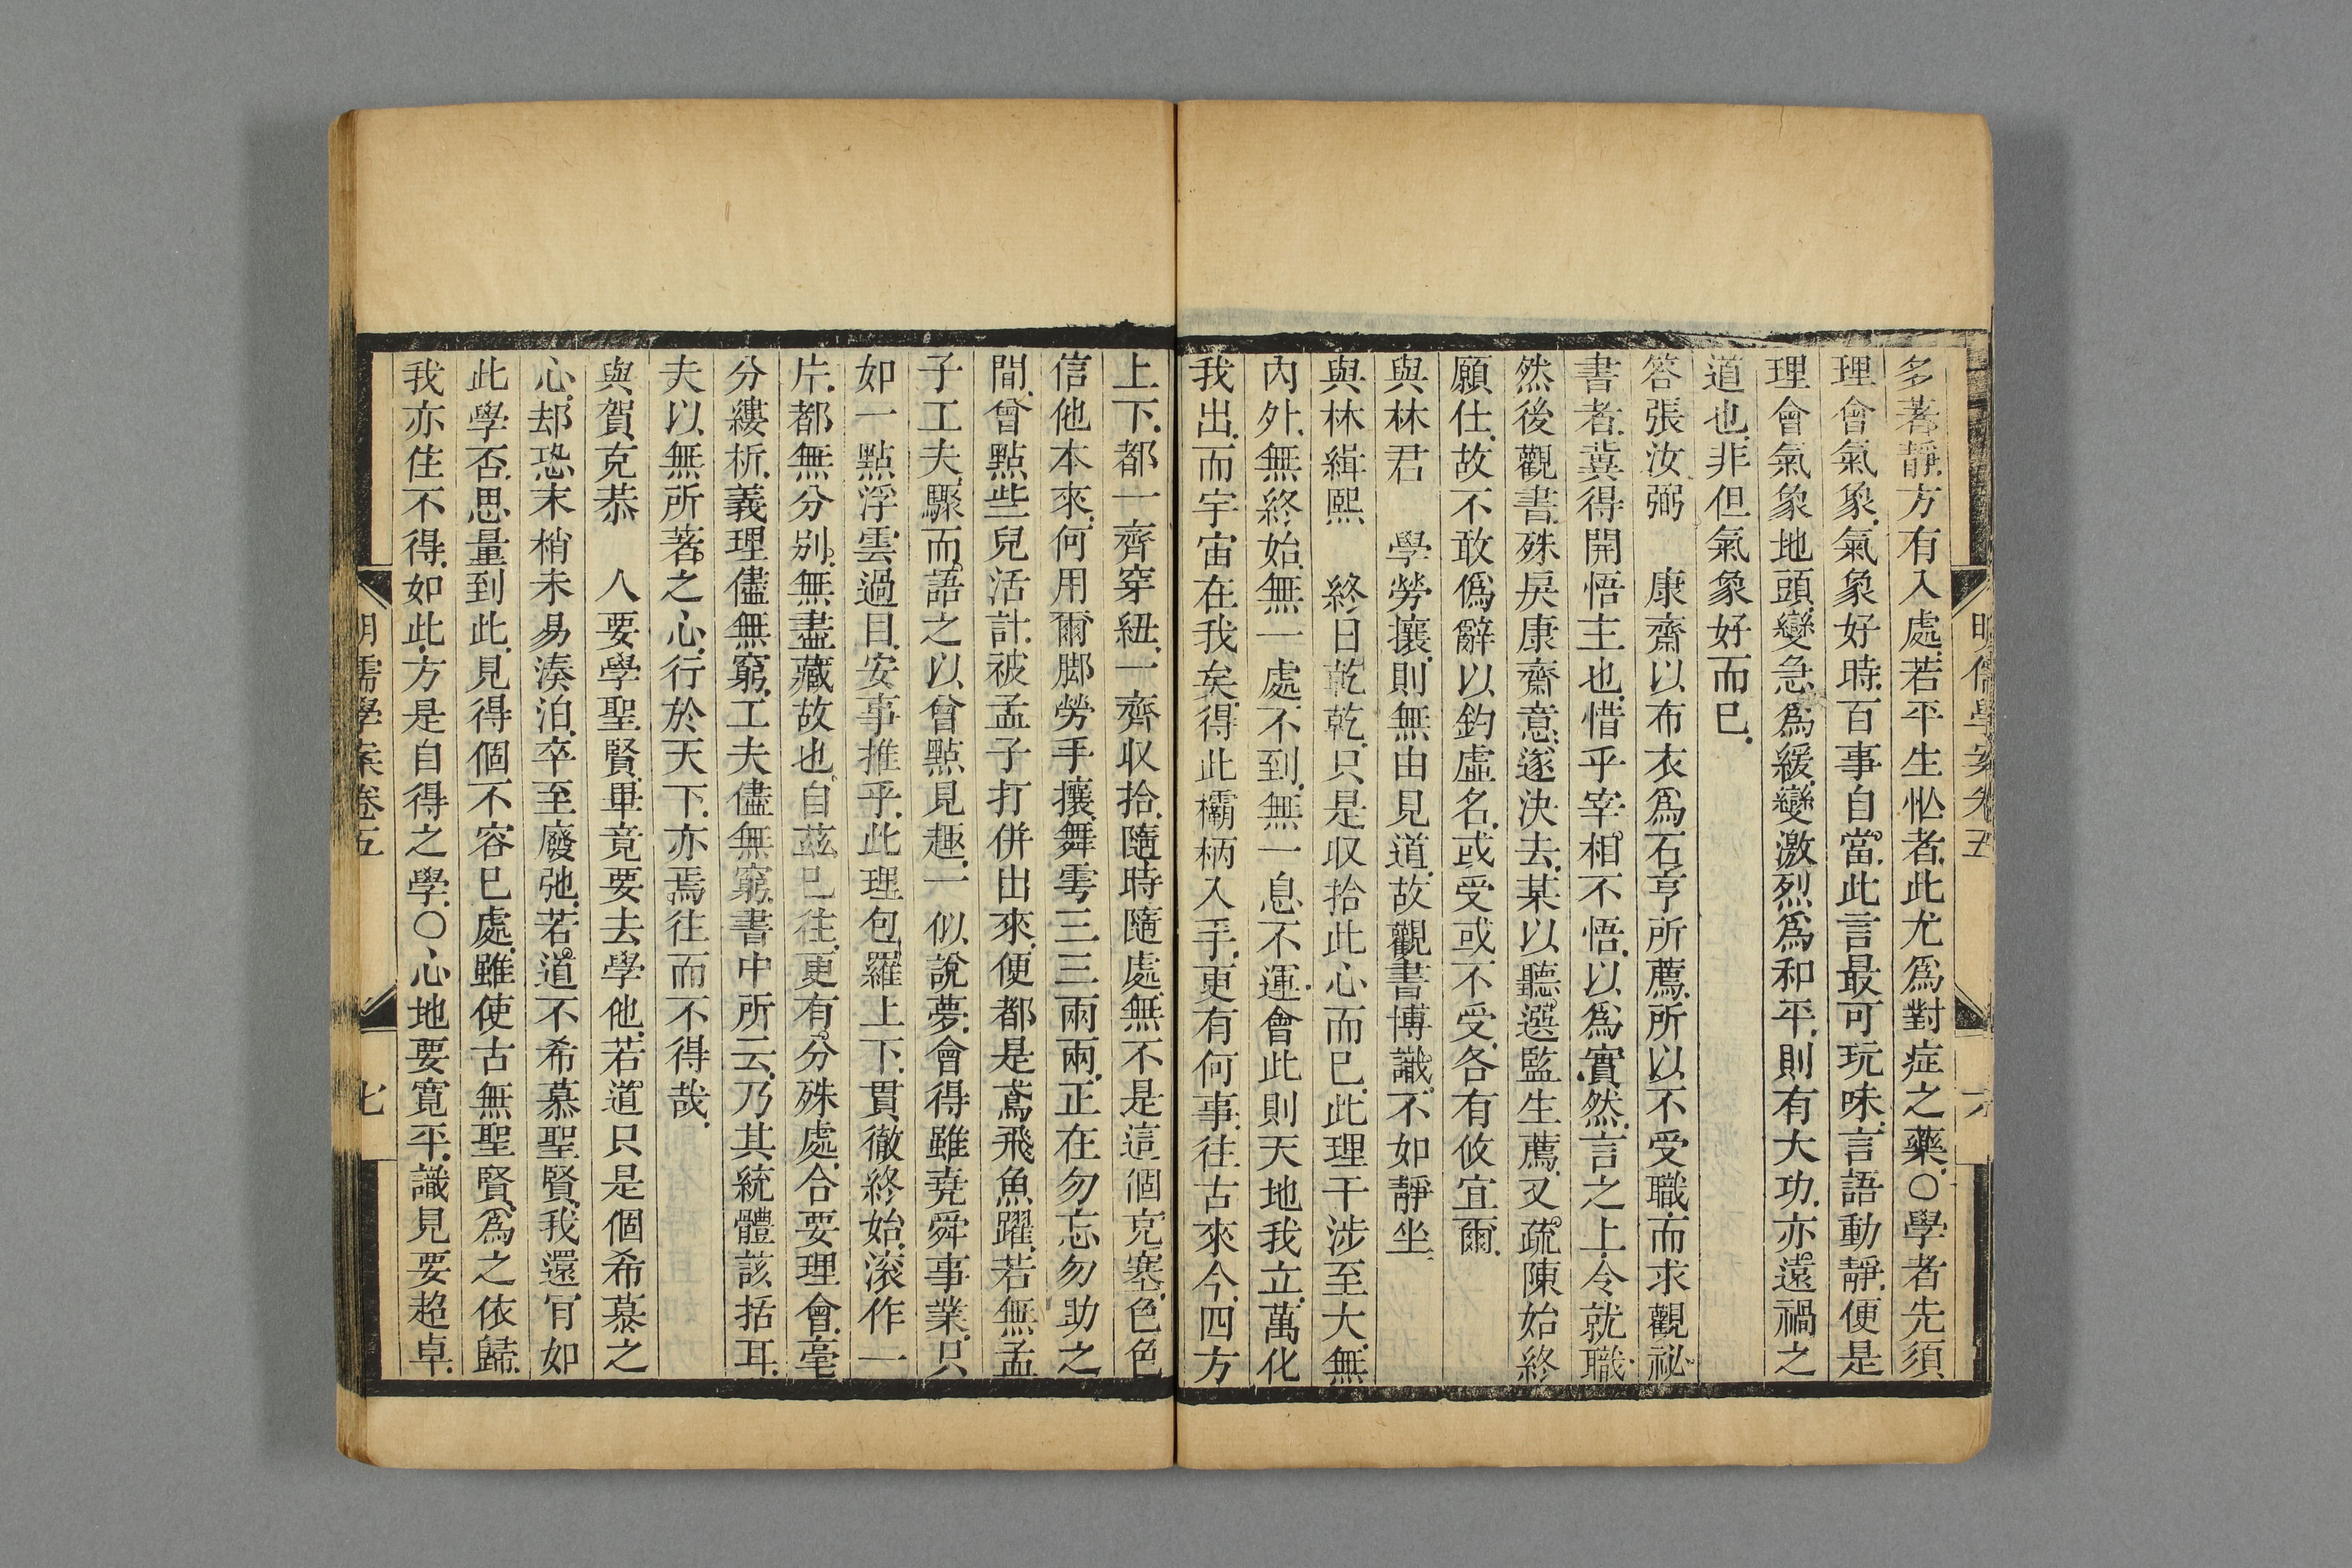 明儒學案卷五
六
多著靜方有入處若平生忙者此尤爲對症之藥○學者先須
理會氣象氣象好時百事自當此言最可玩味言語動靜便是
理會氣象地頭變急爲緩變激烈爲和平則有大功亦遠禍之
道也非但氣象好而已
答張汝弼　康齋以布衣爲石亨所薦所以不受職而求觀祕
書者冀得開悟主也惜乎宰相不悟以爲實然言之上令就職
然後觀書殊戾康齋意遂決去某以聽選監生薦又疏陳始終
願仕故不敢僞辭以釣虛名或受或不受各有攸宜爾
與林君　學勞攘則無由見道故觀書博識不如靜坐
與林緝熙　終日乾乾只是収拾此心而已此理干涉至大無
內外無終始無一處不到無一息不運會此則天地我立萬化
我出而宇宙在我矣得此欛柄入手更有何事往古來今四方
上下都一齊穿紐一齊収拾隨時隨處無不是這個充塞色色
信他本來何用爾脚勞手攘舞雩三三兩兩正在勿忘勿助之
間曾點些兒活計被孟子打併出來便都是鳶飛魚躍若無孟
子工夫驟而語之以曾點見趣一似說夢會得雖堯舜事業只
如一點浮雲過目安事推乎此理包羅上下貫徹終始滾作一
片都無分別無盡藏故也自茲已往更有分殊處合要理會毫
分縷析義理儘無窮工夫儘無窮書中所云乃其統體該括耳
夫以無所著之心行於天下亦焉往而不得哉
與賀克恭　人要學聖賢畢竟要去學他若道只是個希慕之
心却恐末梢未易湊泊卒至廢弛若道不希慕聖賢我還肎如
此學否思量到此見得個不容已處雖使古無聖賢爲之依歸
我亦住不得如此方是自得之學○心地要寬平識見要超卓
明儒學案卷五
七